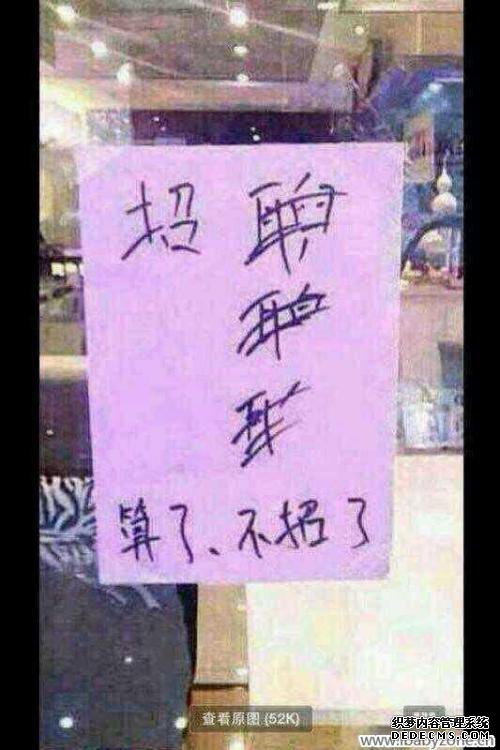 招
算了、不招了
查看原图 (52K)
织梦内容管理系统
DEDECMS.COM
www.ibabyzone.cn